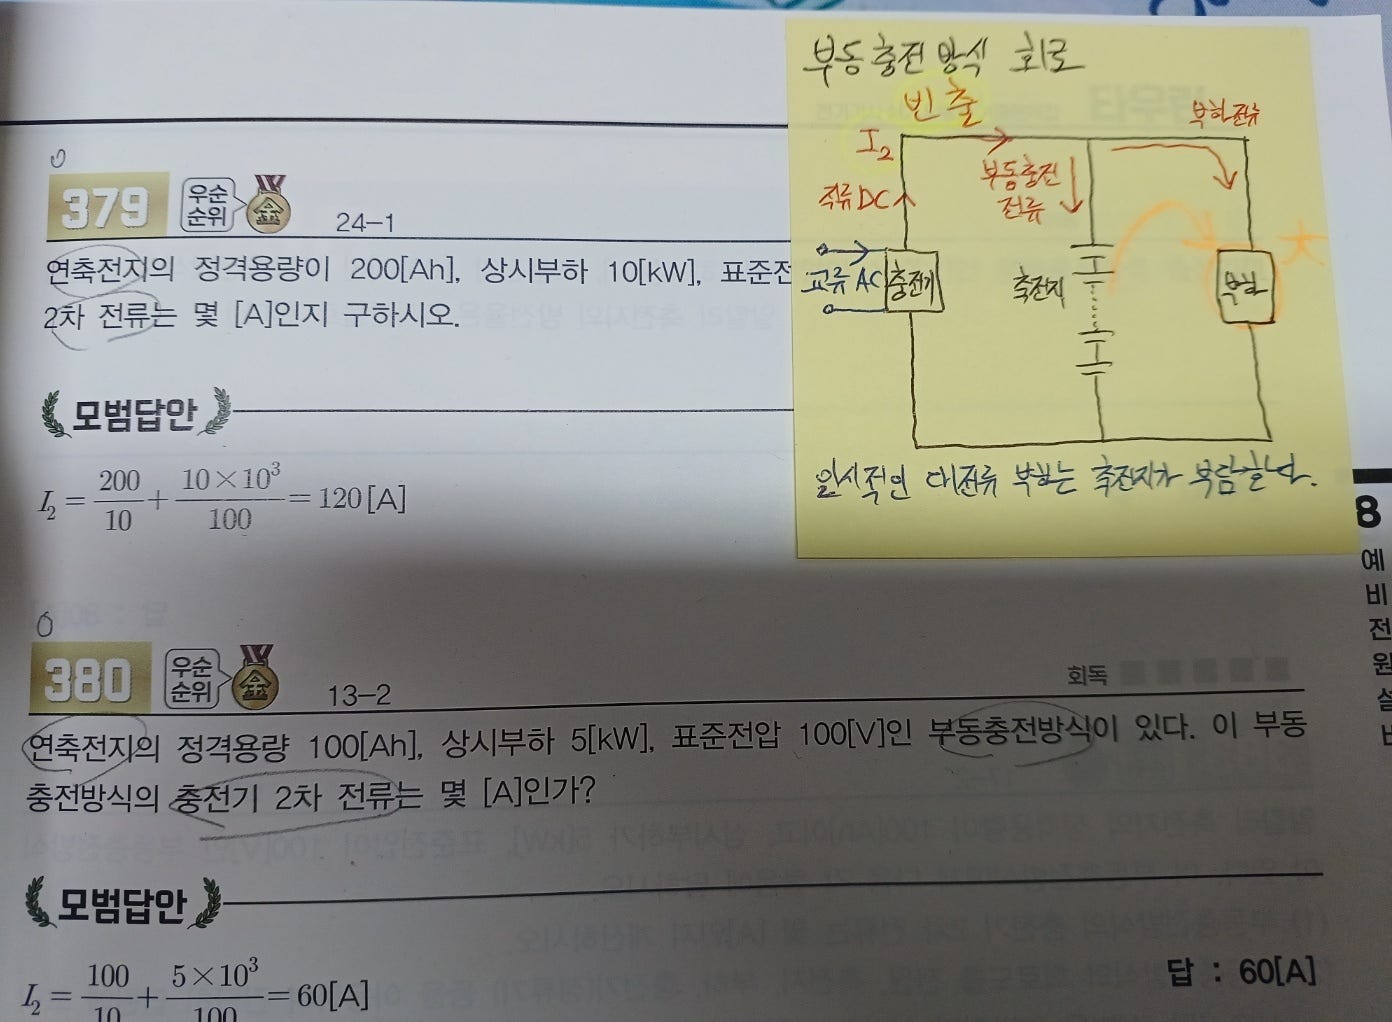 부동충전방식 회로
빈출
I₂
부하전류
부동충전
전류
직류 DC
교류 AC
충전기
축전지
부하
大
일시적인 대전류 부하는 축전지가 부담한다.
379
우순
순위
金
24-1
연축전지의 정격용량이 200[Ah], 상시부하 10[kW], 표준전
2차 전류는 몇 [A]인지 구하시오.
모범답안
I₂ = 200/10 + 10×10³/100 = 120[A]
380
우순
순위
金
13-2
회독
연축전지의 정격용량 100[Ah], 상시부하 5[kW], 표준전압 100[V]인 부동충전방식이 있다. 이 부동
충전방식의 충전기 2차 전류는 몇 [A]인가?
모범답안
I₂ = 100/10 + 5×10³/100 = 60[A]
답 : 60[A]
8
예
비
전
원
설